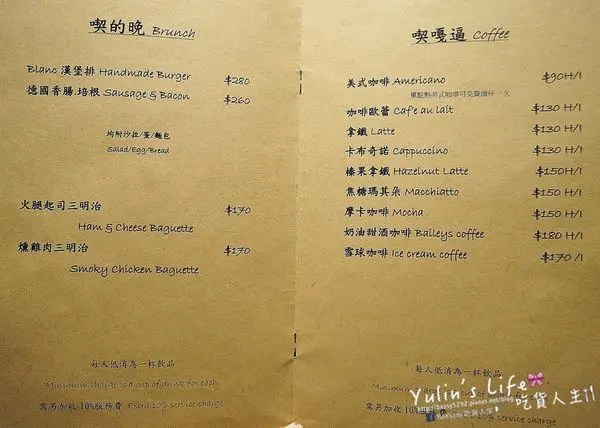 喫的晚 Brunch
Blanc 漢堡排 Handmade Burger $280
德國香腸.培根 Sausage & Bacon $260
均附沙拉/蛋/麵包
Salad/Egg/Bread
火腿起司三明治 $170
Ham & Cheese Baguette
燻雞肉三明治 $170
Smoky Chicken Baguette
每人低消為一杯飲品
Minimum charge is a cup of drink for each
需另加收10%服務費 Extra 10% service charge
喫嘎逼 Coffee
美式咖啡 Americano $90H/I
單點熱美式咖啡可免費續杯一次
咖啡歐蕾 Caf'e au lait $130 H/I
拿鐵 Latte $130 H/I
卡布奇諾 Cappuccino $130 H/I
榛果拿鐵 Hazelnut Latte $150H/I
焦糖瑪其朵 Macchiatto $150 H/I
摩卡咖啡 Mocha $150 H/I
奶油甜酒咖啡 Baileys coffee $180 H/I
雪球咖啡 Ice cream coffee $170 /I
每人低消為一杯飲品
Minimum
需另加收10% service charge
Yulin's Life
吃貨人生